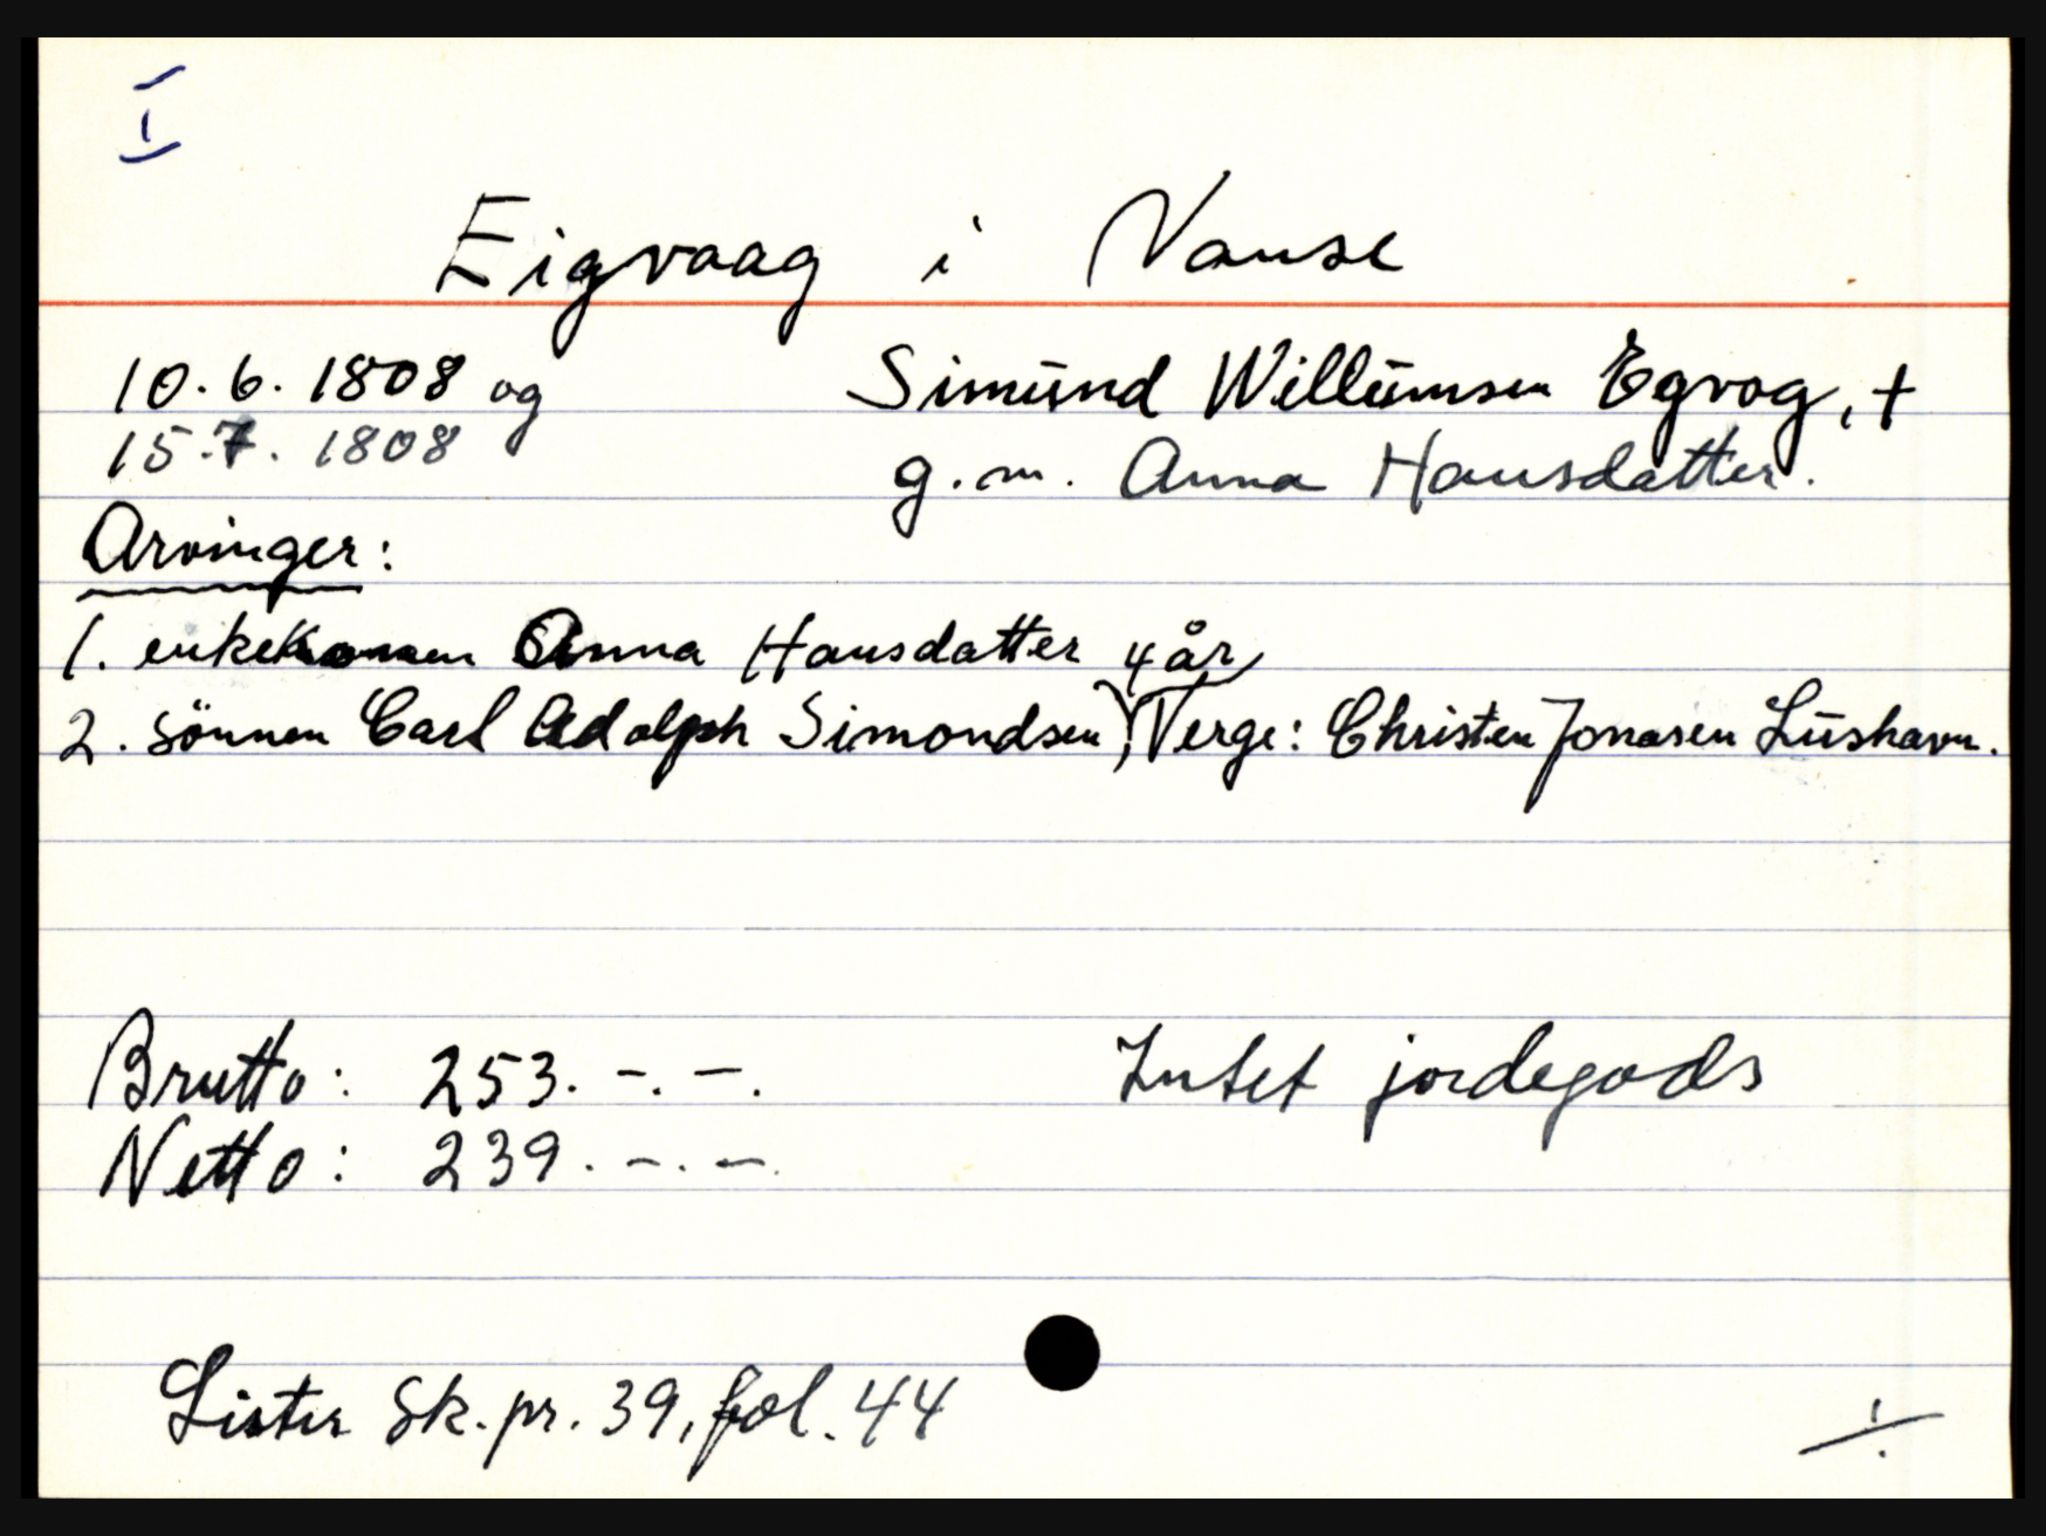 I
Eigvaag i Vanse
10.6.1808 og
15.7.1808
Simund Willumsen Egvog, +
g.m. Anna Hansdatter.
Arvinger:
1. enkekonen Anna Hansdatter
2. sönnen Carl Adolph Simondsen, 4 år, Verge: Christen Jonasen Lushavn.
Brutto: 253. -. -.
Intet jordegods
Netto: 239. -. -.
Lister Sk.pr. 39, fol. 44